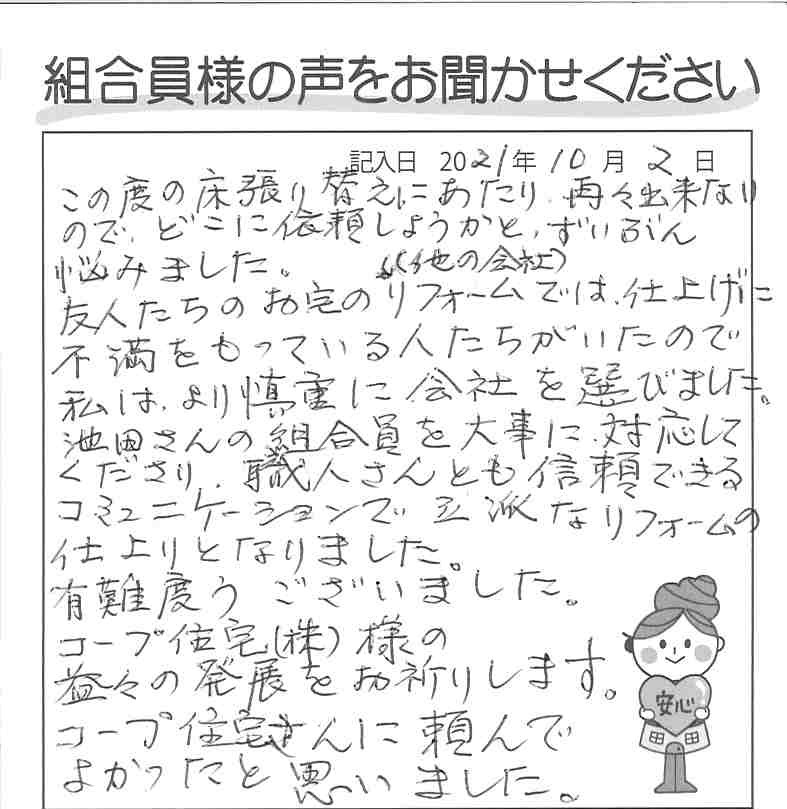 組合員様の声をお聞かせください
記入日 2021年 10月 2日
この度の床張り替えにあたり、再々出来ない
ので、どこに依頼しようかと、ずいぶん
悩みました。
(他の会社)
友人たちのお宅のリフォームでは、仕上げに
不満をもっている人たちがいたので
私は、より慎重に会社を選びました。
池田さんの組合員を大事に対応して
くださり、職人さんとも信頼できる
コミュニケーションで立派なリフォームの
仕上りとなりました。
有難度うございました。
コープ住宅(株)様の
益々の発展をお祈りします。
コープ住宅さんに頼んで
よかったと思いました。
安心